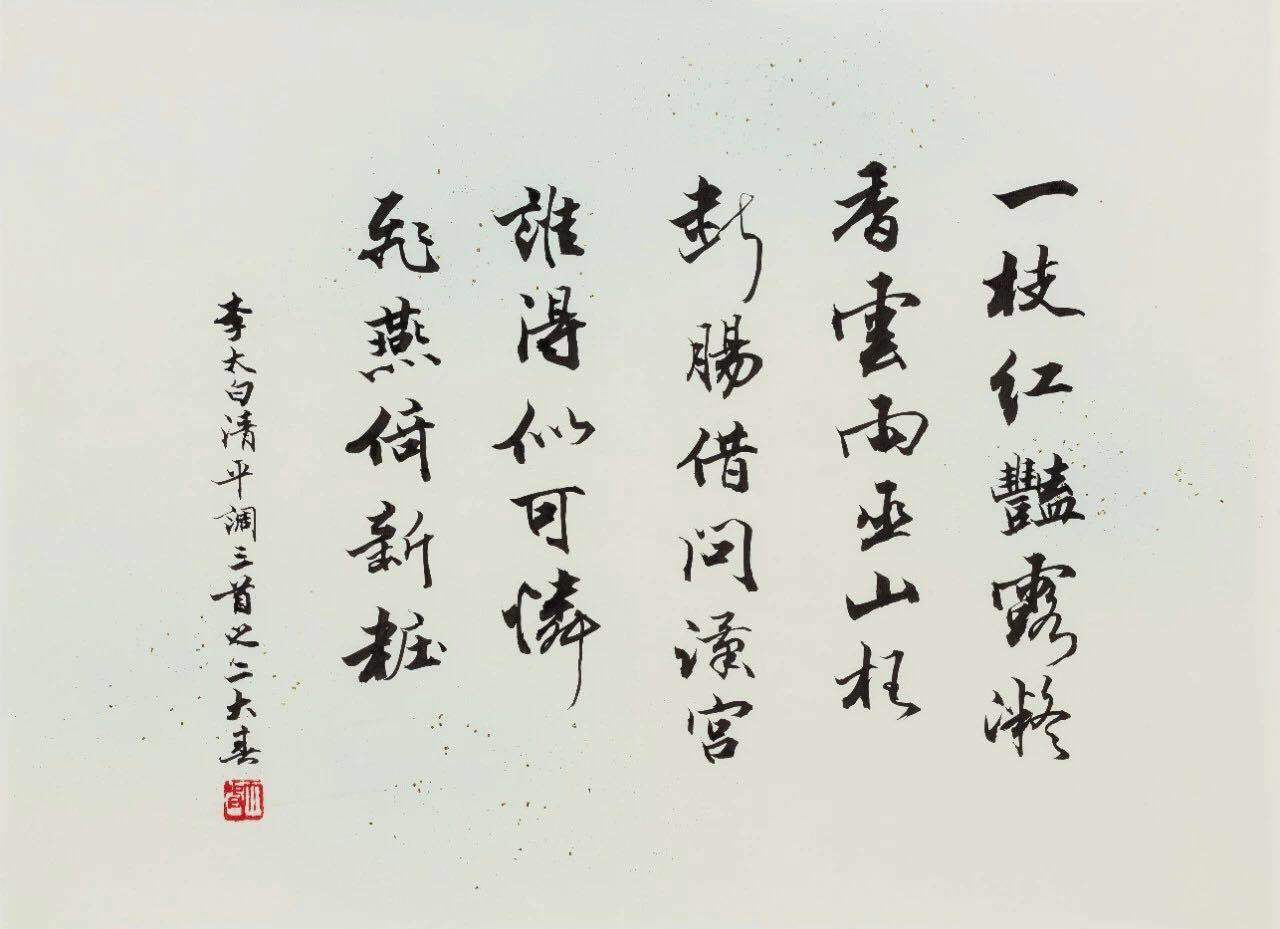 一枝红豔露凝
香雲雨巫山枉
斷腸借问漢宫
誰得似可憐
飛燕倚新粧
李太白清平调三首之二大春